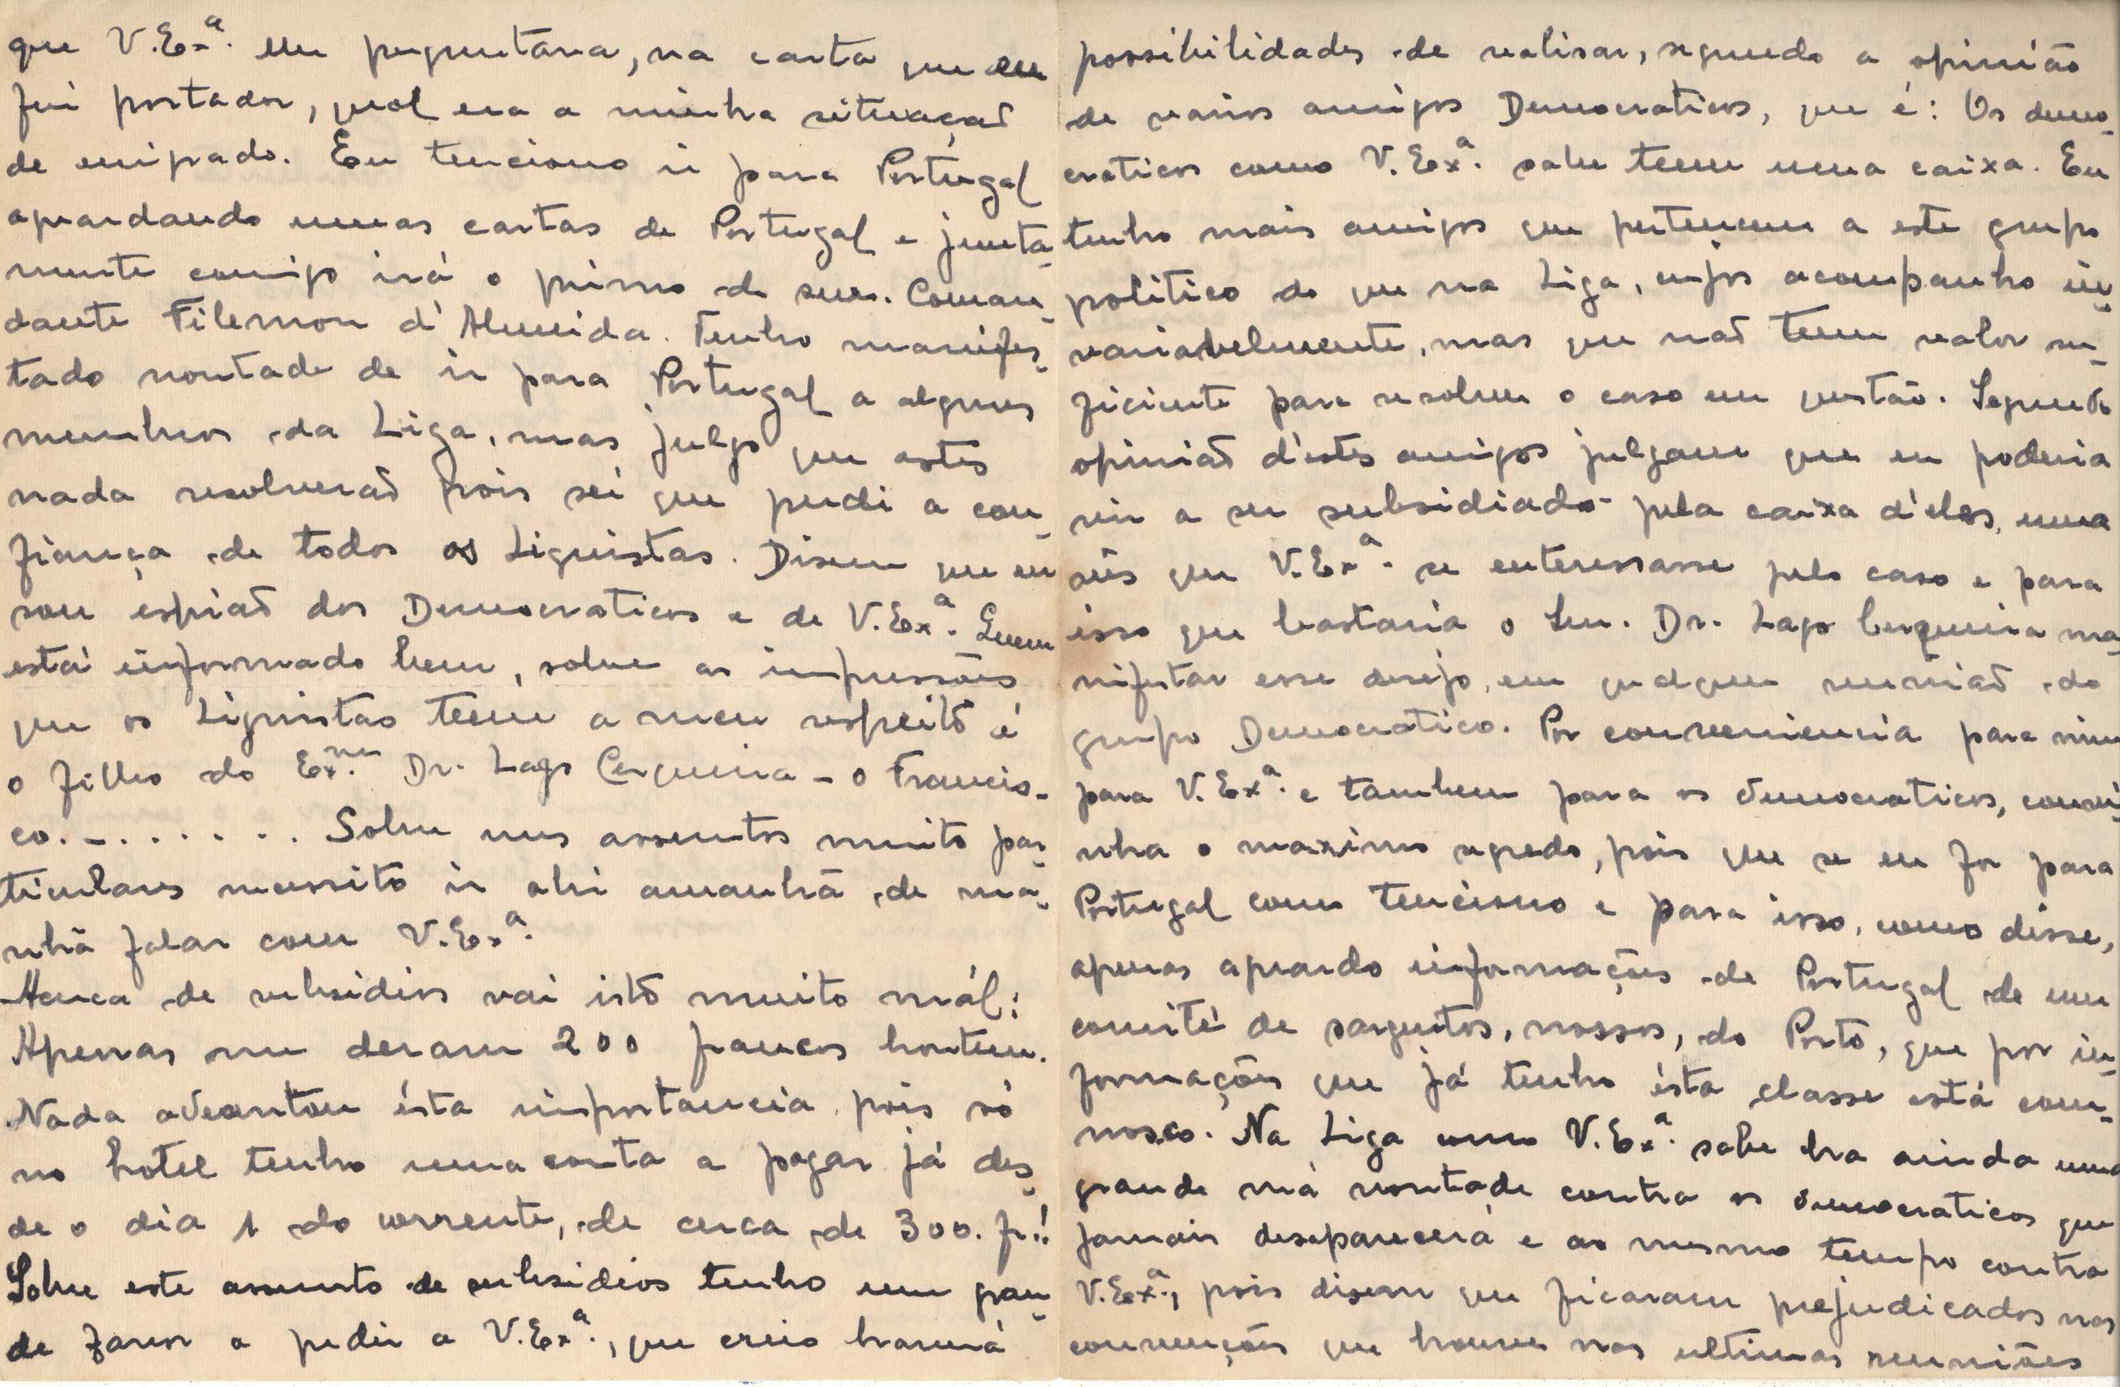 que V.Exª. me preguntava, na carta que eu
fui portador, qual era a minha situaçaõ
de emigrado. Eu tenciono ir para Portugal
aguardando umas cartas de Portugal e junta-
mente comigo irá o primo do snr. Coman-
dante Filemon d'Almeida. Tenho manifes-
tado vontade de ir para Portugal a alguns
membros da Liga, mas julgo que estes
nada resolveraõ pois sei que perdi a con-
fiança de todos os Liguistas. Disem que eu
sou espiaõ dos Democraticos e de V.Exª. Quem
está informado bem, sobre as impressões
que os Liguistas teem a meu respeito é
o filho do Exmº Dr. Lago Cerqueira - o Francis-
co. - . . . . . . . Sobre uns assuntos muito par-
ticulares necessito ir ahi amanhã de ma-
nhã falar com V.Exª.
Acerca de subsidios vai isto muito mál:
Apenas me deram 200 francos hontem.
Nada adeantou ésta importancia pois só
no hotel tenho uma conta a pagar já des-
de o dia 1 do corrente, de cerca de 300. fr.!
Sobre este assunto de subsidios tenho um gran-
de favor a pedir a V.Exª., que creio haverá
possibilidades de realisar, segundo a opinião
de varios amigos Democraticos, que é: Os demo-
craticos como V.Exª. sabe teem uma caixa. Eu
tenho mais amigos que pertencem a este grupo
politico do que na Liga, cujos acompanho in-
variabelmente, mas que naõ teem valor su-
ficiente para resolver o caso em questão. Segundo
opiniaõ d'estes amigos julgam que eu poderia
vir a ser subsidiado pela caixa d'eles, uma
vês que V.Exª. se enteressasse pelo caso e para
isso que bastaria o Snr. Dr. Lago Cerqueira ma-
nifestar esse desejo, em qualquer reuniaõ do
grupo Democratico. Por conveniencia para mim
para V.Exª. e tambem para os democraticos, convi-
nha o maximo segredo, pois que se eu for para
Portugal como tenciono e para isso, como disse,
apenas aguardo informações de Portugal de um
comité de sargentos, nossos, do Porto, que por in-
formações que já tenho ésta classe está com-
nosco. Na Liga como V.Exª. sabe ha ainda uma
grande má vontade contra os democraticos que
jamais desaparecerá e ao mesmo tempo contra
V.Exª., pois disem que ficaram prejudicados nas
convenções que houve nas ultimas reuniões